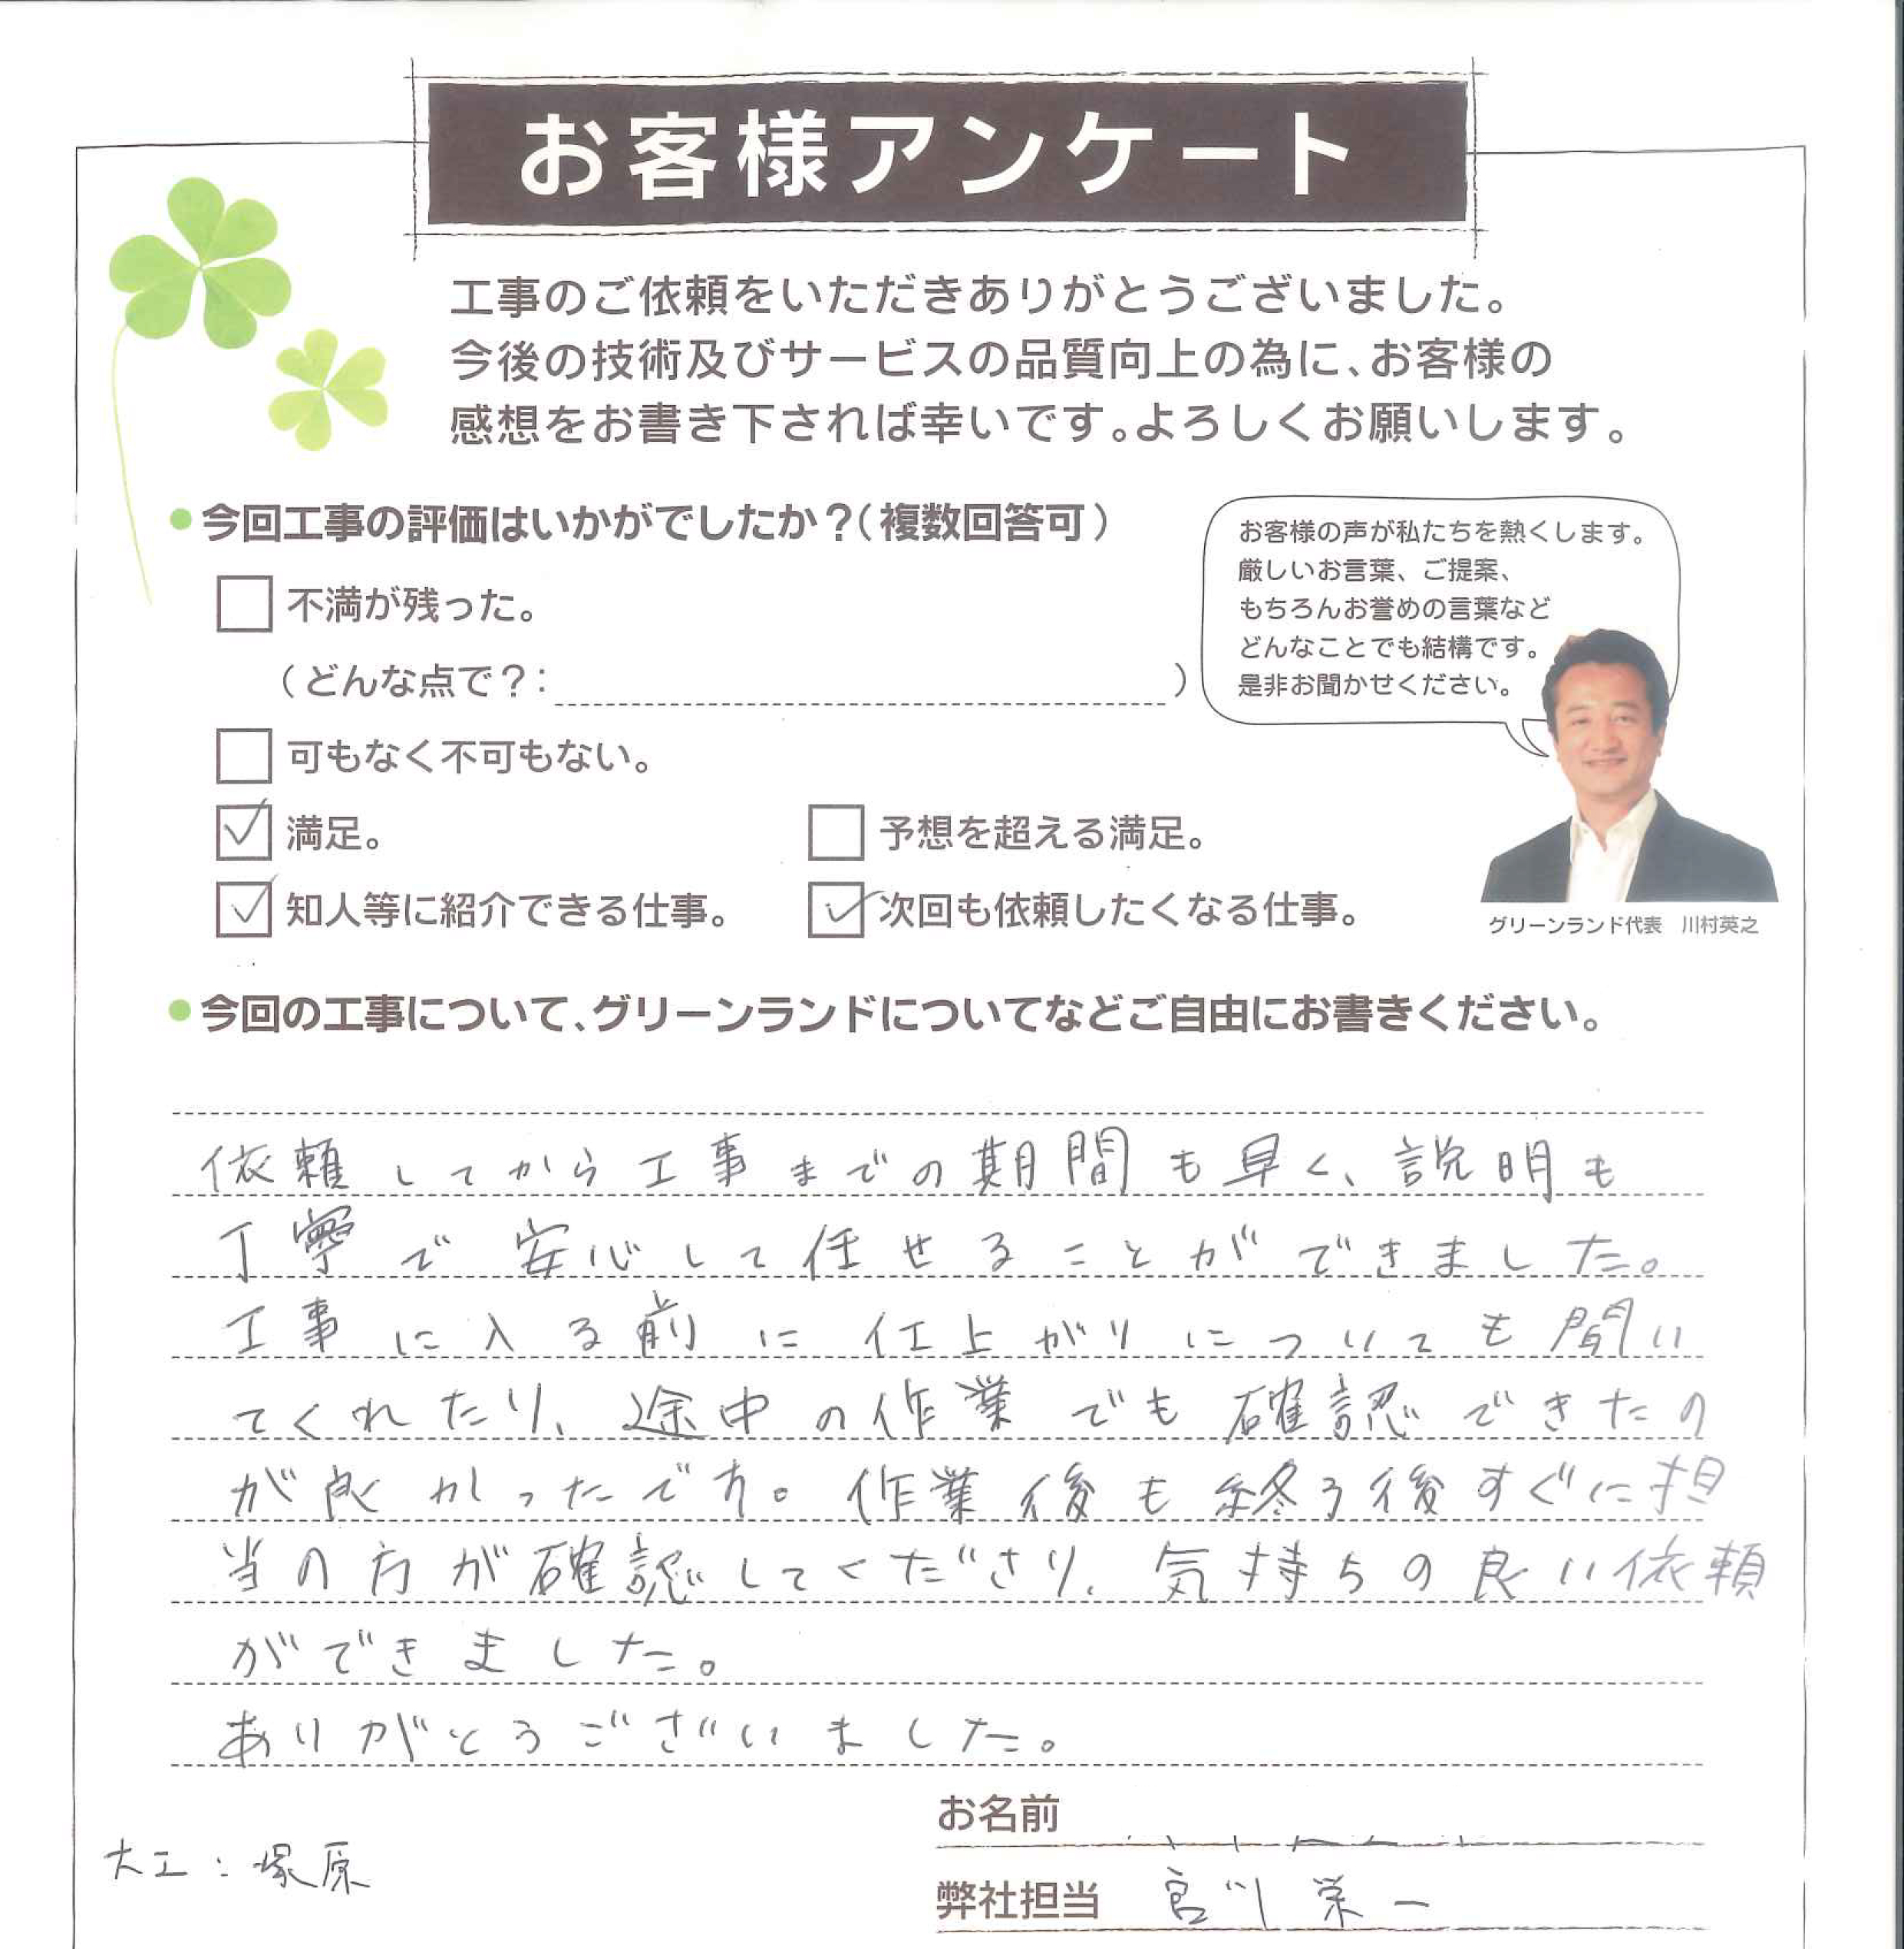 お客様アンケート
工事のご依頼をいただきありがとうございました。
今後の技術及びサービスの品質向上の為に、お客様の
感想をお書き下されば幸いです。よろしくお願いします。
●今回工事の評価はいかがでしたか？（複数回答可）
不満が残った。
（どんな点で？：　）
可もなく不可もない。
満足。
予想を超える満足。
知人等に紹介できる仕事。
次回も依頼したくなる仕事。
お客様の声が私たちを熱くします。
厳しいお言葉、ご提案、
もちろんお誉めの言葉など
どんなことでも結構です。
是非お聞かせください。
グリーンランド代表　川村英之
●今回の工事について、グリーンランドについてなどご自由にお書きください。
依頼してから工事までの期間も早く、説明も
丁寧で安心して任せることができました。
工事に入る前に仕上がりについても聞い
てくれたり、途中の作業でも確認できたの
が良かったです。作業後も終る後すぐに担
当の方が確認してくださり、気持ちの良い依頼
ができました。
ありがとうございました。
お名前
大工：塚原
弊社担当　宮川栄一